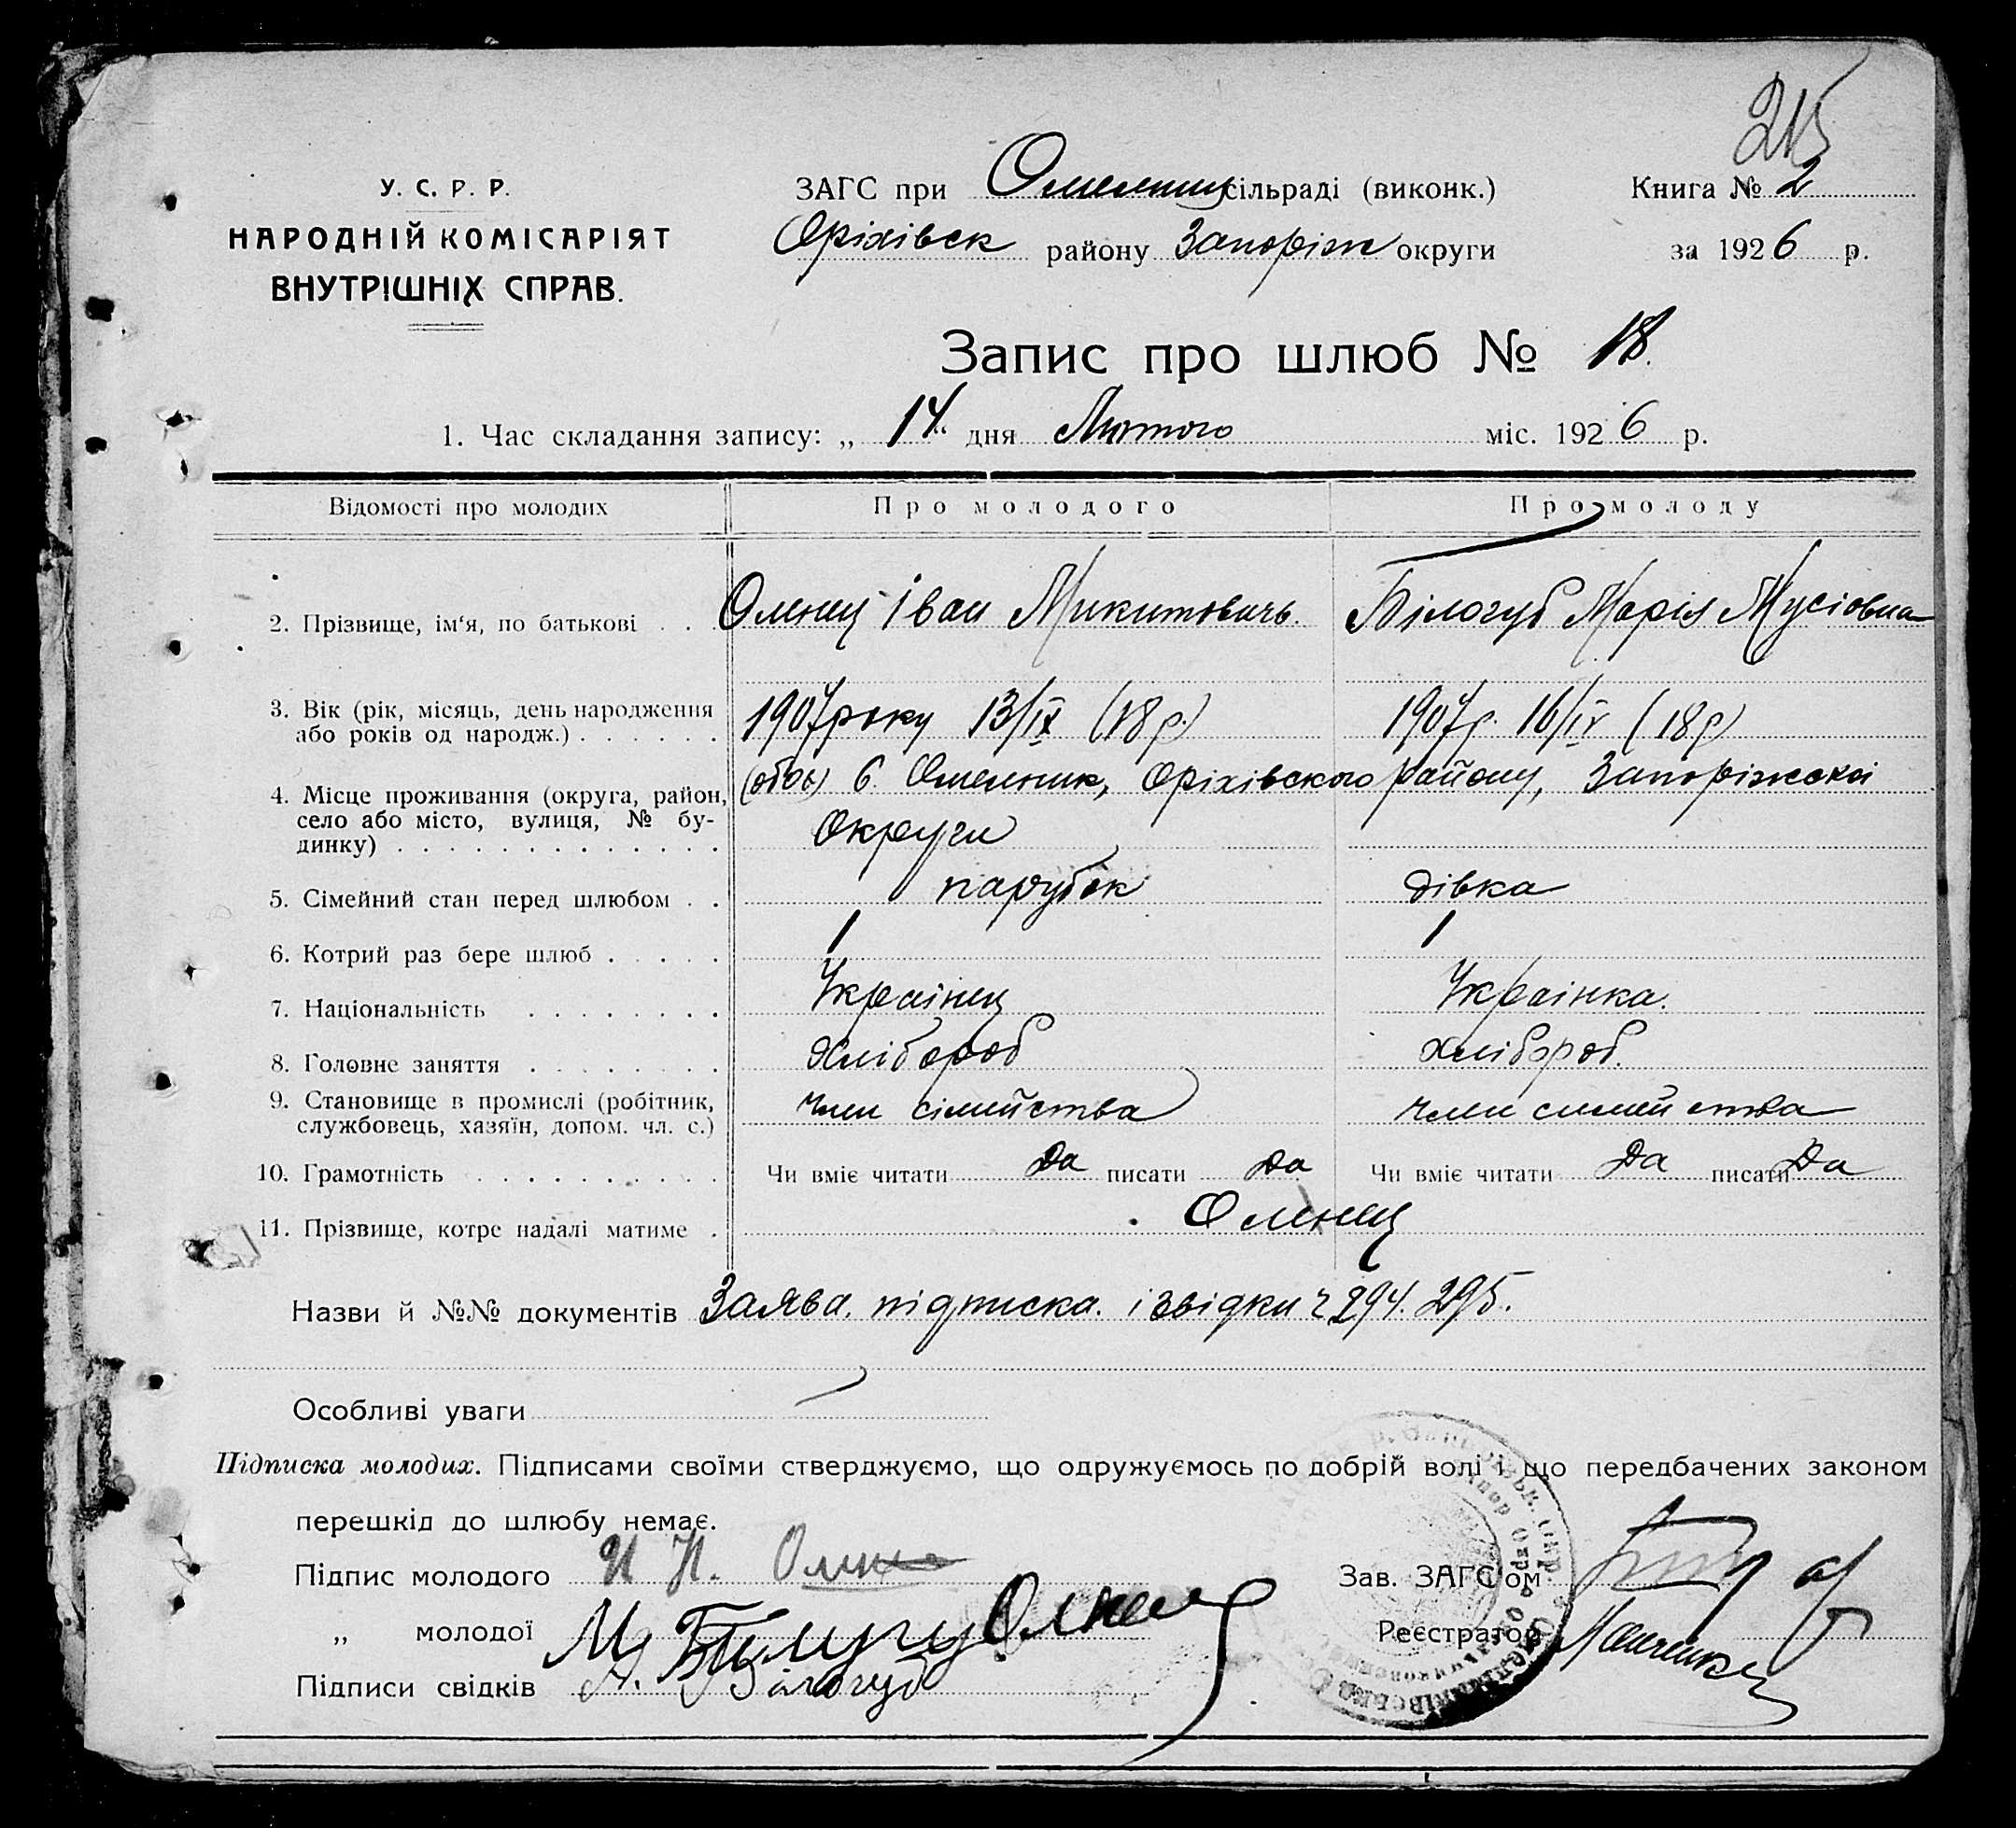 215
У. С. Р. Р.
НАРОДНІЙ КОМІСАРІЯТ
ВНУТРІШНІХ СПРАВ.
ЗАГС при Омельниц сільраді (виконк.)
Книга № 2
Оріхівск району Запоріж округи
за 1926 р.
Запис про шлюб № 18.
1. Час складання запису: „ 14 “ дня Лютого міс. 1926 р.
Відомості про молодих
Про молодого
Про молоду
2. Прізвище, ім‘я, по батькові . .
Олєнец Іван Микитовичь.
Білогуб Марія Мусіовна
3. Вік (рік, місяць, день народження
або років од народж.) . . . . . .
1907 року 13/IX (18 р.)
1907 р. 16/IV (18 р)
4. Місце проживання (округа, район,
село або місто, вулиця, № бу-
динку) . . . . . . . . . . . . .
(обоє) с. Омельник, Оріхівского району, Запоріжскоі
Округи
5. Сімейний стан перед шлюбом . .
парубок
дівка
6. Котрий раз бере шлюб . . . . .
1
1
7. Національність . . . . . . . .
Украінец
Украінка.
8. Головне заняття . . . . . . . .
хлібороб
хлібороб.
9. Становище в промислі (робітник,
службовець, хазяїн, допом. чл. с.)
член сімейства
член симейства
10. Грамотність . . . . . . . . . .
Чи вміє читати Да писати Да
Чи вміє читати Да писати Да
11. Прізвище, котре надалі матиме .
Олєнец
Назви й №№ документів Заява. підписка. і звідки ч 294. 295.
Особливі уваги
Підписка молодих. Підписами своїми стверджуємо, що одружуємось по добрій волі і що передбачених законом
перешкід до шлюбу немає.
Підпис молодого
Зав. ЗАГС‘ом
„ молодої
Реєстратор
Підписи свідків А. Білогуб